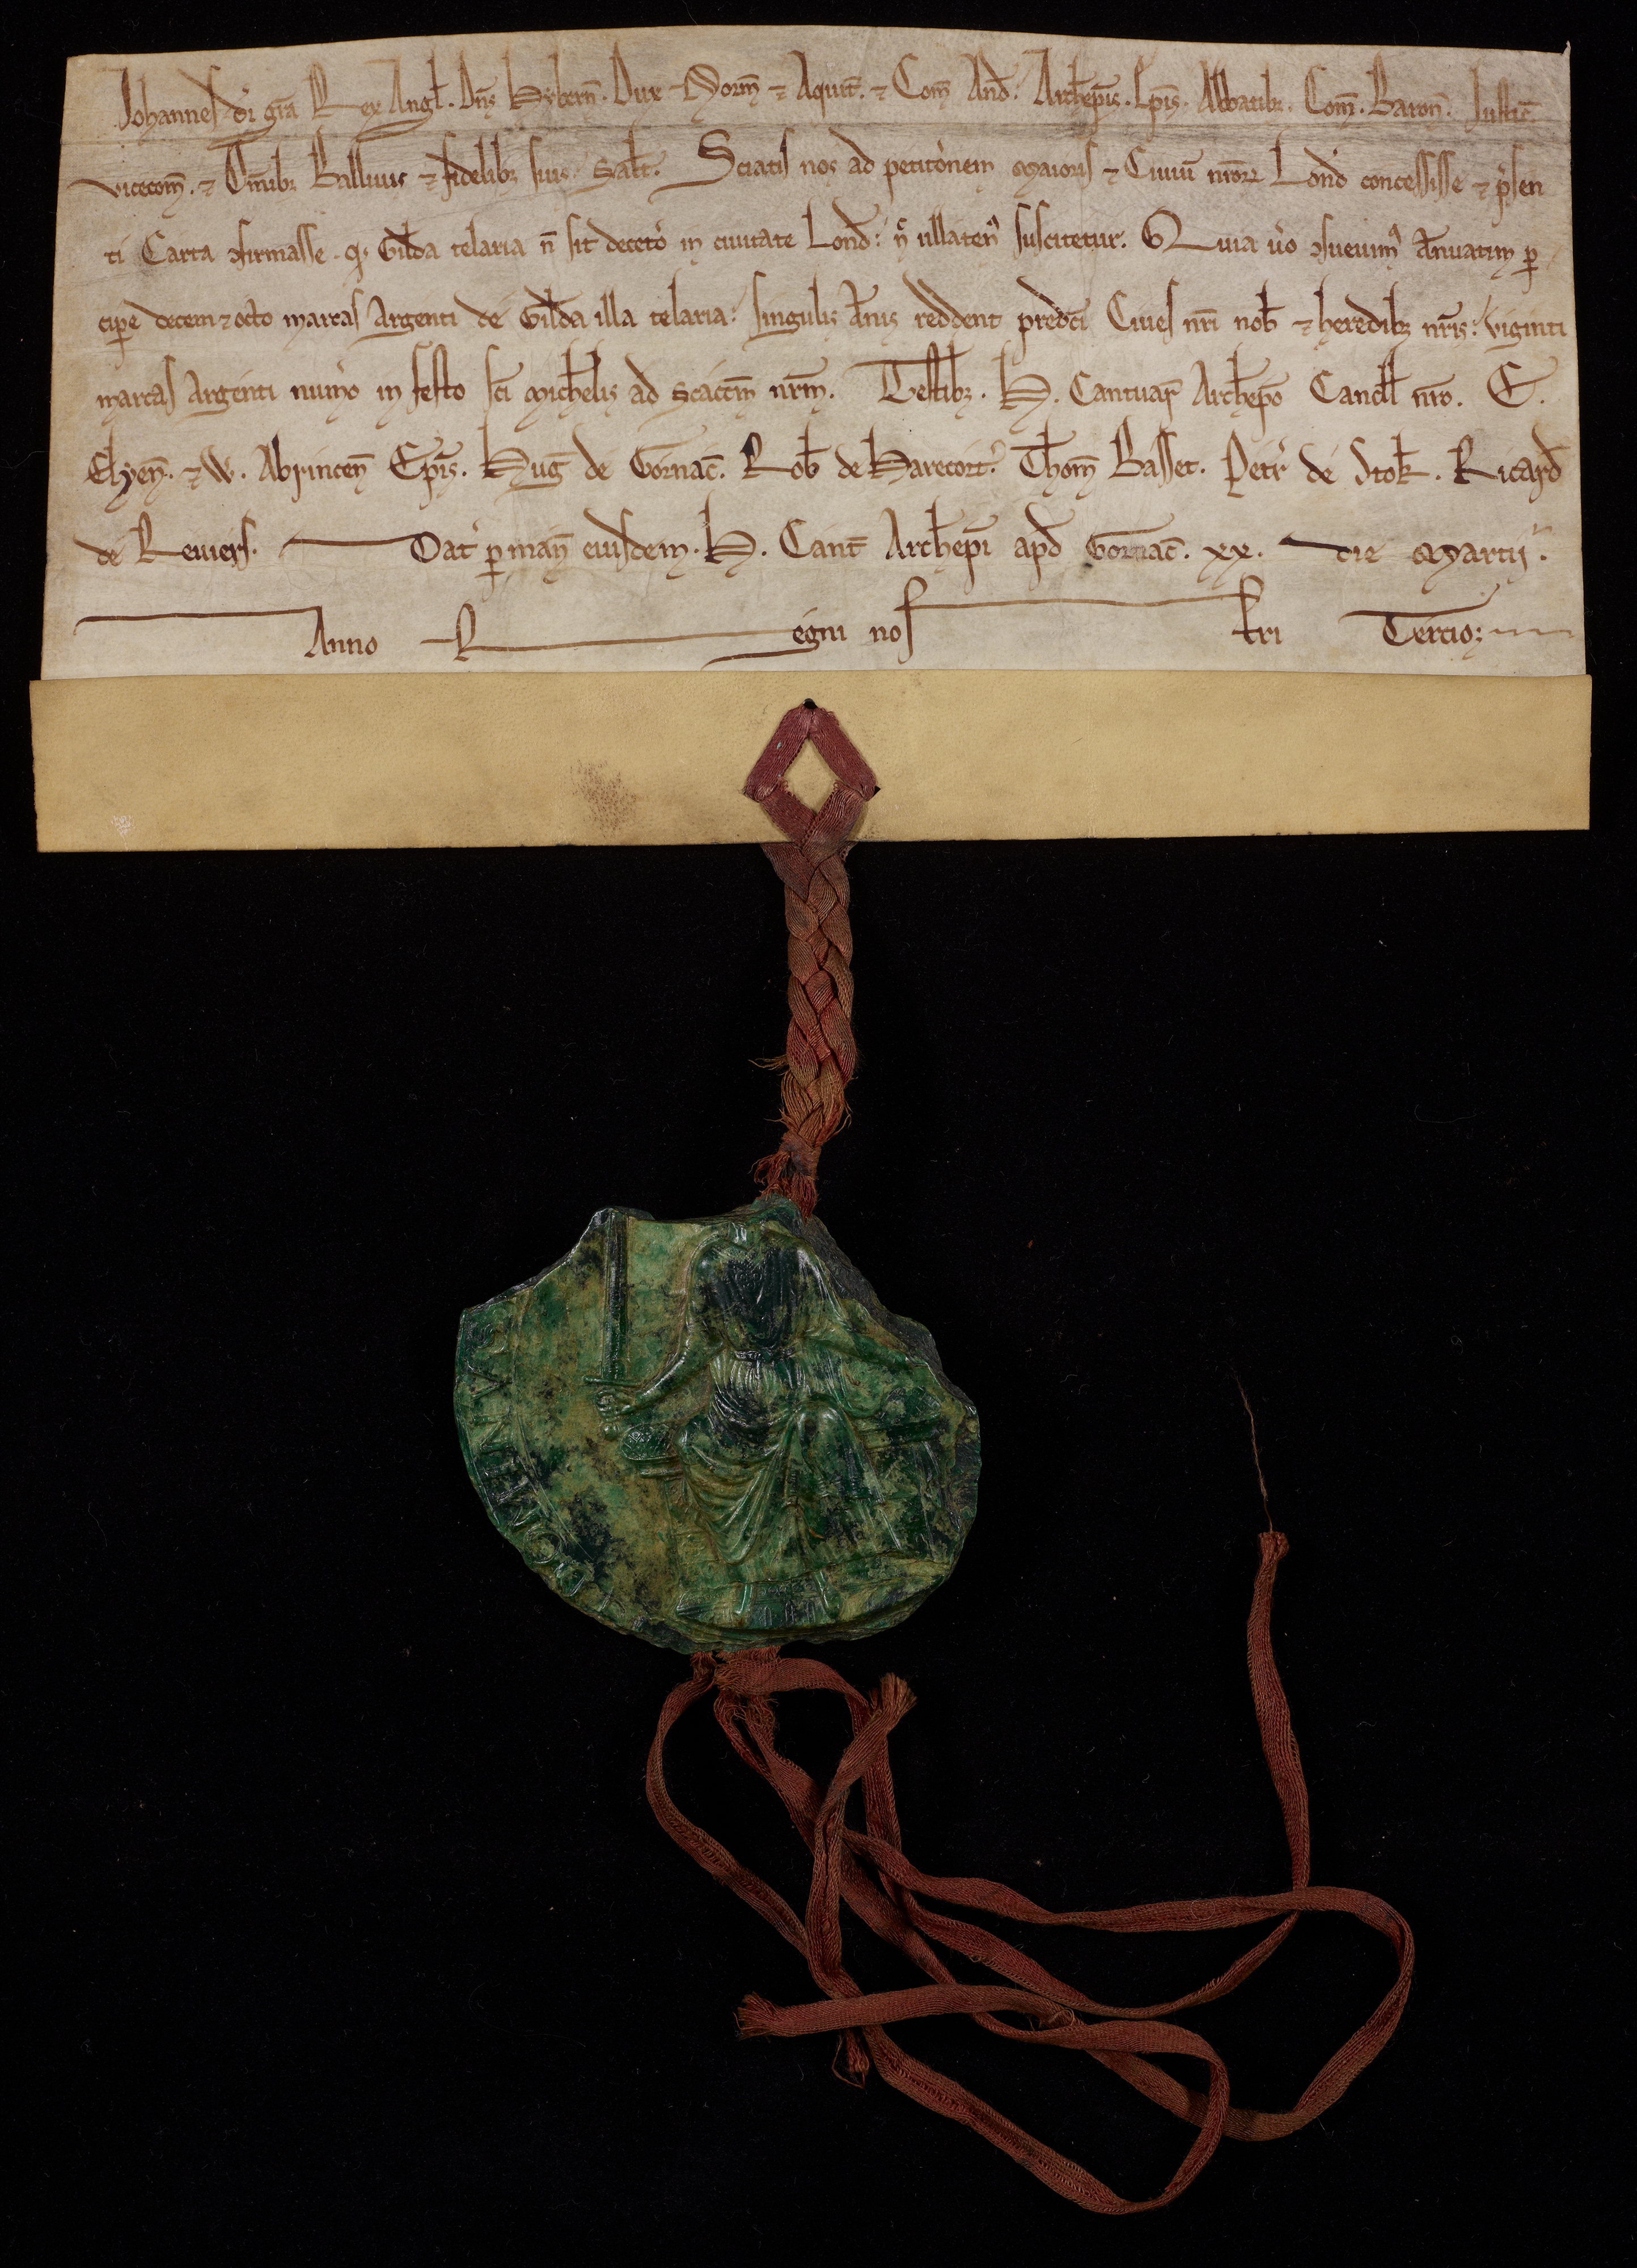 Johannes dı̄ gr̄a Rex Angl̄. Dn̄s Hybern̄. Dux Norm̄ ⁊ Aquit̄. ⁊ Com̄ And̄. Arch̄ep̄is. Ep̄is. Abbatibꝫ. Com̄. Baron̄. Justic̄
vicecom̄. ⁊ Om̄ibꝫ Balliuis ⁊ fidelibꝫ suis. Sal̄t. Sciatis nos ad petitōnem Maioris ⁊ Ciuiū nr̄oꝝ Lond̄ concessisse ⁊ p̄sen
ti Carta ꝯfirmasse. qd̄ Gilda telaria n̄ sit decet̄o in ciuitate Lond̄: n̄ ullatenꝰ suscitetur. Quia ūo ꝯsueuimꝰ Annuatim ꝑ
cipe decem ⁊ octo marcas Argenti de Gilda illa telaria: singulis Annis reddent predc̄i Ciues nr̄i nob̄ ⁊ heredibꝫ nr̄is: viginti
marcas Argenti num̄o in festo sc̄i Mich̄elis ad scacc̄m nr̄m. Testibꝫ. H. Cantuar̄ Arch̄ep̄o Cancell̄ nr̄o. E.
Elyen̄. ⁊ W. Abrincen̄ Ep̄is. Huḡ de Gornac̄. Rob̄ de Harecort̄. Thom̄ Basset. Petr̄ de Stok̄. Ricard̄
de Reuiers. Dat̄ ꝑ man̄ eiusdem. H. Cant̄ Arch̄ep̄i ap̄d Gornac̄. xx. die Martij.
Anno Regni nostri Tercio;
DOMINVS